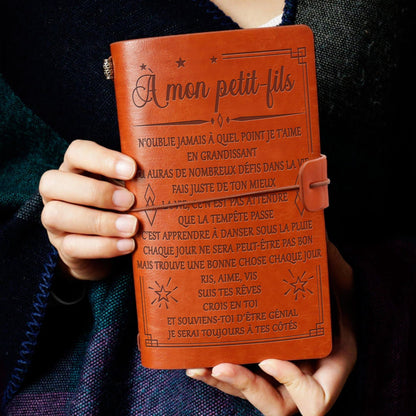 À mon petit-fils
N'OUBLIE JAMAIS À QUEL POINT JE T'AIME
EN GRANDISSANT
AURAS DE NOMBREUX DÉFIS DANS LA VIE
FAIS JUSTE DE TON MIEUX
CE N'EST PAS ATTENDRE
QUE LA TEMPÊTE PASSE
C'EST APPRENDRE À DANSER SOUS LA PLUIE
CHAQUE JOUR NE SERA PEUT-ÊTRE PAS BON
MAIS TROUVE UNE BONNE CHOSE CHAQUE JOUR
RIS, AIME, VIS
SUIS TES RÊVES
CROIS EN TOI
ET SOUVIENS-TOI D'ÊTRE GÉNIAL
JE SERAI TOUJOURS À TES CÔTÉS